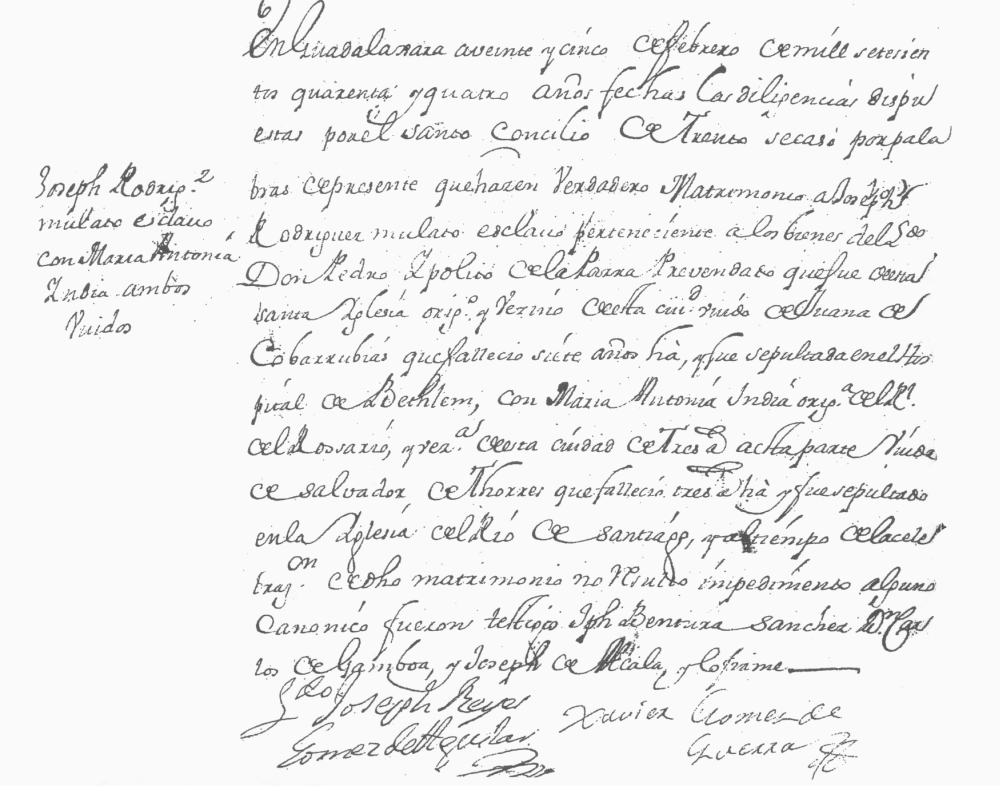 6
En Guadalaxara a veinte y cinco de febrero de mill setesien
tos quarenta y quatro años fechas las diligencias dispu
estas por el santo Concilio de Trento se caso por pala
bras de presente que hazen Verdadero Matrimonio a Joseph
Rodriguez mulato esclavo perteneciente a los bienes del Ldo
Don Pedro Ypolito de la Parra Prevendado que fue de esta
santa Yglesia orig.º y Vezino de esta ciu.d viudo de Juana de
Cobarrubias que fallecio siete años hà, y fue sepultada en el Hos
pital de Bethlem, con Maria Antonia India orig.a del R.l
del Rossario, y vez.a de esta ciudad de Tres a.s a esta parte Viuda
de salvador de Thorres que falleció tres a.s hà y fue sepultado
en la Yglesia del Rio de Santiago, y al tiempo de la celeb
traz.on de dho matrimonio no resulto impedimento alguno
Canonico fueron testigos Jph Bentura Sanchez D.n Car
los de Gamboa, y Joseph de Alcala, y lo firme
Joseph Rodrig.z
mulato esclavo
con Maria Antonia
India ambos
Viudos
Ldo Joseph Reyes
Gomez de Aguilar
Xavier Gomez de
Guerra